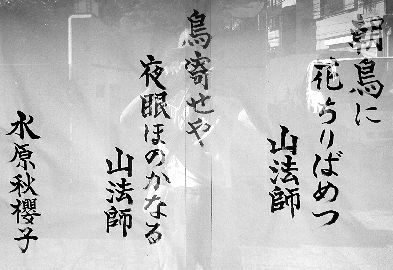 朝鳥に
花ちりばめつ
山法師
鳥寄せや
夜眼ほのかなる
山法師
水原秋櫻子